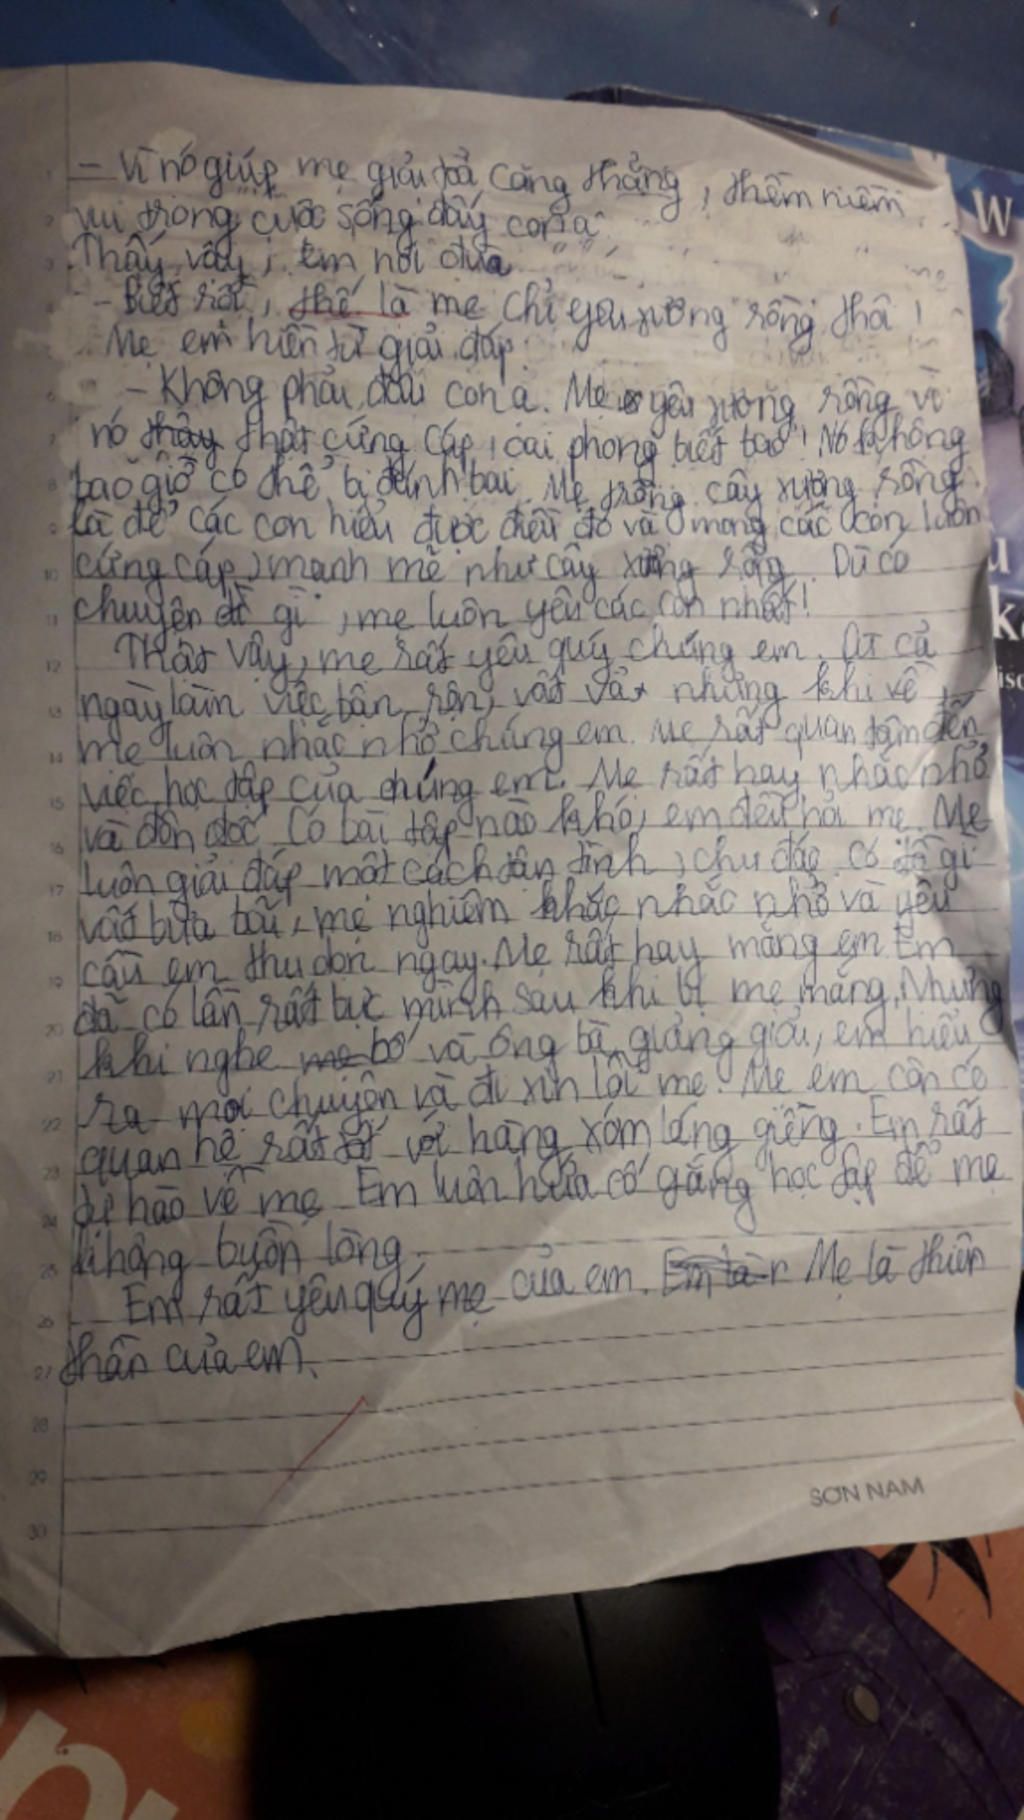 - Vì nó giúp mẹ giải toả căng thẳng, thêm niềm
vui trong cuộc sống đấy con ạ
Thấy vậy, em nói đùa
- Biết rồi, thế là mẹ chỉ yêu xương rồng thôi!
Mẹ em hiền từ giải đáp:
- Không phải đâu con ạ. Mẹ yêu xương rồng vì
nó thấy thật cứng cáp, oai phong biết bao! Nó không
bao giờ có thể bị đánh bại. Mẹ trồng cây xương rồng
là để các con hiểu được điều đó và mong các con luôn
cứng cáp, mạnh mẽ như cây xương rồng. Dù có
chuyện gì, mẹ luôn yêu các con nhất!
Thật vậy, mẹ rất yêu quý chúng em. Cả
ngày làm việc bận rộn, vất vả nhưng khi về,
mẹ luôn nhắc nhở chúng em. Mẹ rất quan tâm đến
việc học tập của chúng em. Mẹ rất hay nhắc nhở
và đôn đốc. Có bài tập nào khó, em đều hỏi mẹ. Mẹ
luôn giải đáp một cách tận tình, chu đáo. Có đồ gì
vứt bừa bãi, mẹ nghiêm khắc nhắc nhở và yêu
cầu em thu dọn ngay. Mẹ rất hay mắng em. Em
đã có lần rất bực mình sau khi bị mẹ mắng. Nhưng
khi nghe mẹ bố và ông bà giảng giải, em hiểu
ra mọi chuyện và đi xin lỗi mẹ. Mẹ em còn có
quan hệ rất tốt với hàng xóm láng giềng. Em rất
tự hào về mẹ. Em luôn hứa cố gắng học tập để mẹ
không buồn lòng.
Em rất yêu quý mẹ của em. Em là Mẹ là thiên
thần của em.
SƠN NAM
W
u